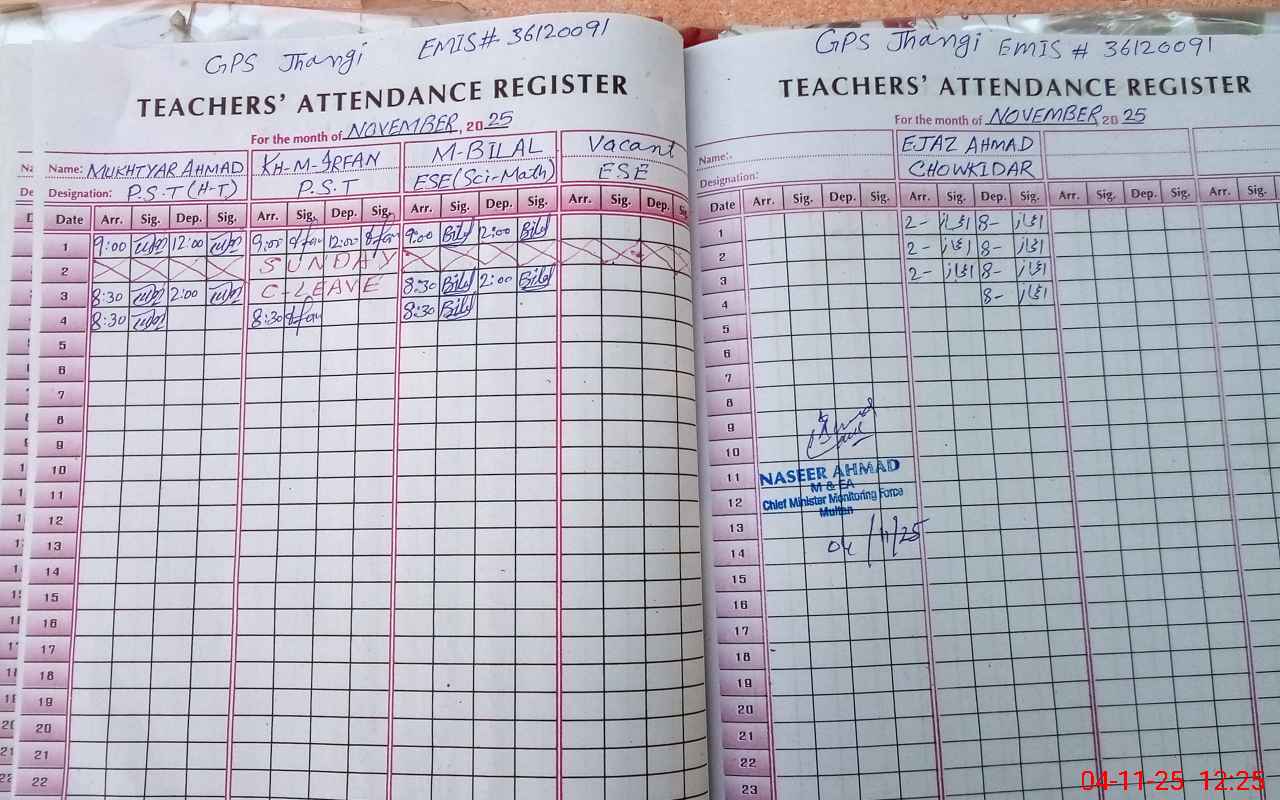 GPS Jhangi EMIS# 36120091
TEACHERS' ATTENDANCE REGISTER
For the month of NOVEMBER, 2025
Name: MUKHTYAR AHMAD KH-M-IRFAN M-BILAL Vacant
Designation: P.S.T (H-T) P.S.T ESE (Sci-Math) ESE
Date Arr. Sig. Dep. Sig. Arr. Sig. Dep. Sig. Arr. Sig. Dep. Sig. Arr. Sig. Dep.
1 9:00 12:00 9:00 Irfan 12:00 Irfan 9:00 Bilal 12:00 Bilal
2 SUNDAY
3 8:30 2:00 C-LEAVE 8:30 Bilal 2:00 Bilal
4 8:30 8:30 Irfan 8:30 Bilal
5
6
7
8
9
10
11
12
13
14
15
16
17
18
19
20
21
22
GPS Jhangi EMIS # 36120091
TEACHERS' ATTENDANCE REGISTER
For the month of NOVEMBER 2025
Name:. EJAZ AHMAD
Designation: CHOWKIDAR
Date Arr. Sig. Dep. Sig. Arr. Sig. Dep. Sig. Arr. Sig. Dep. Sig. Arr. Sig.
1 2- اعجاز 8- اعجاز
2 2- اعجاز 8- اعجاز
3 2- اعجاز 8- اعجاز
4 8- اعجاز
5
6
7
8
9
10
11
12
13
14
15
16
17
18
19
20
21
22
23
NASEER AHMAD
M & EA
Chief Minister Monitoring Force
Multan
04/11/25
04-11-25 12:25